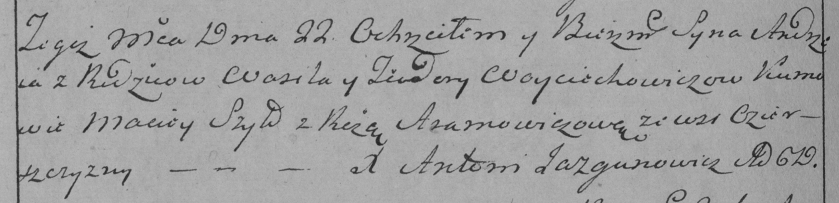 Tegoż Mca Dnia 22 Ochrzciłem y Bierzm: Syna Andrze
ia z Rodzicow Wasila y Teodory Woyciechowiczow Kumo
wie Maciey Szyło z Adamowiczową ze wsi
— — — X Antoni Jazgunowicz